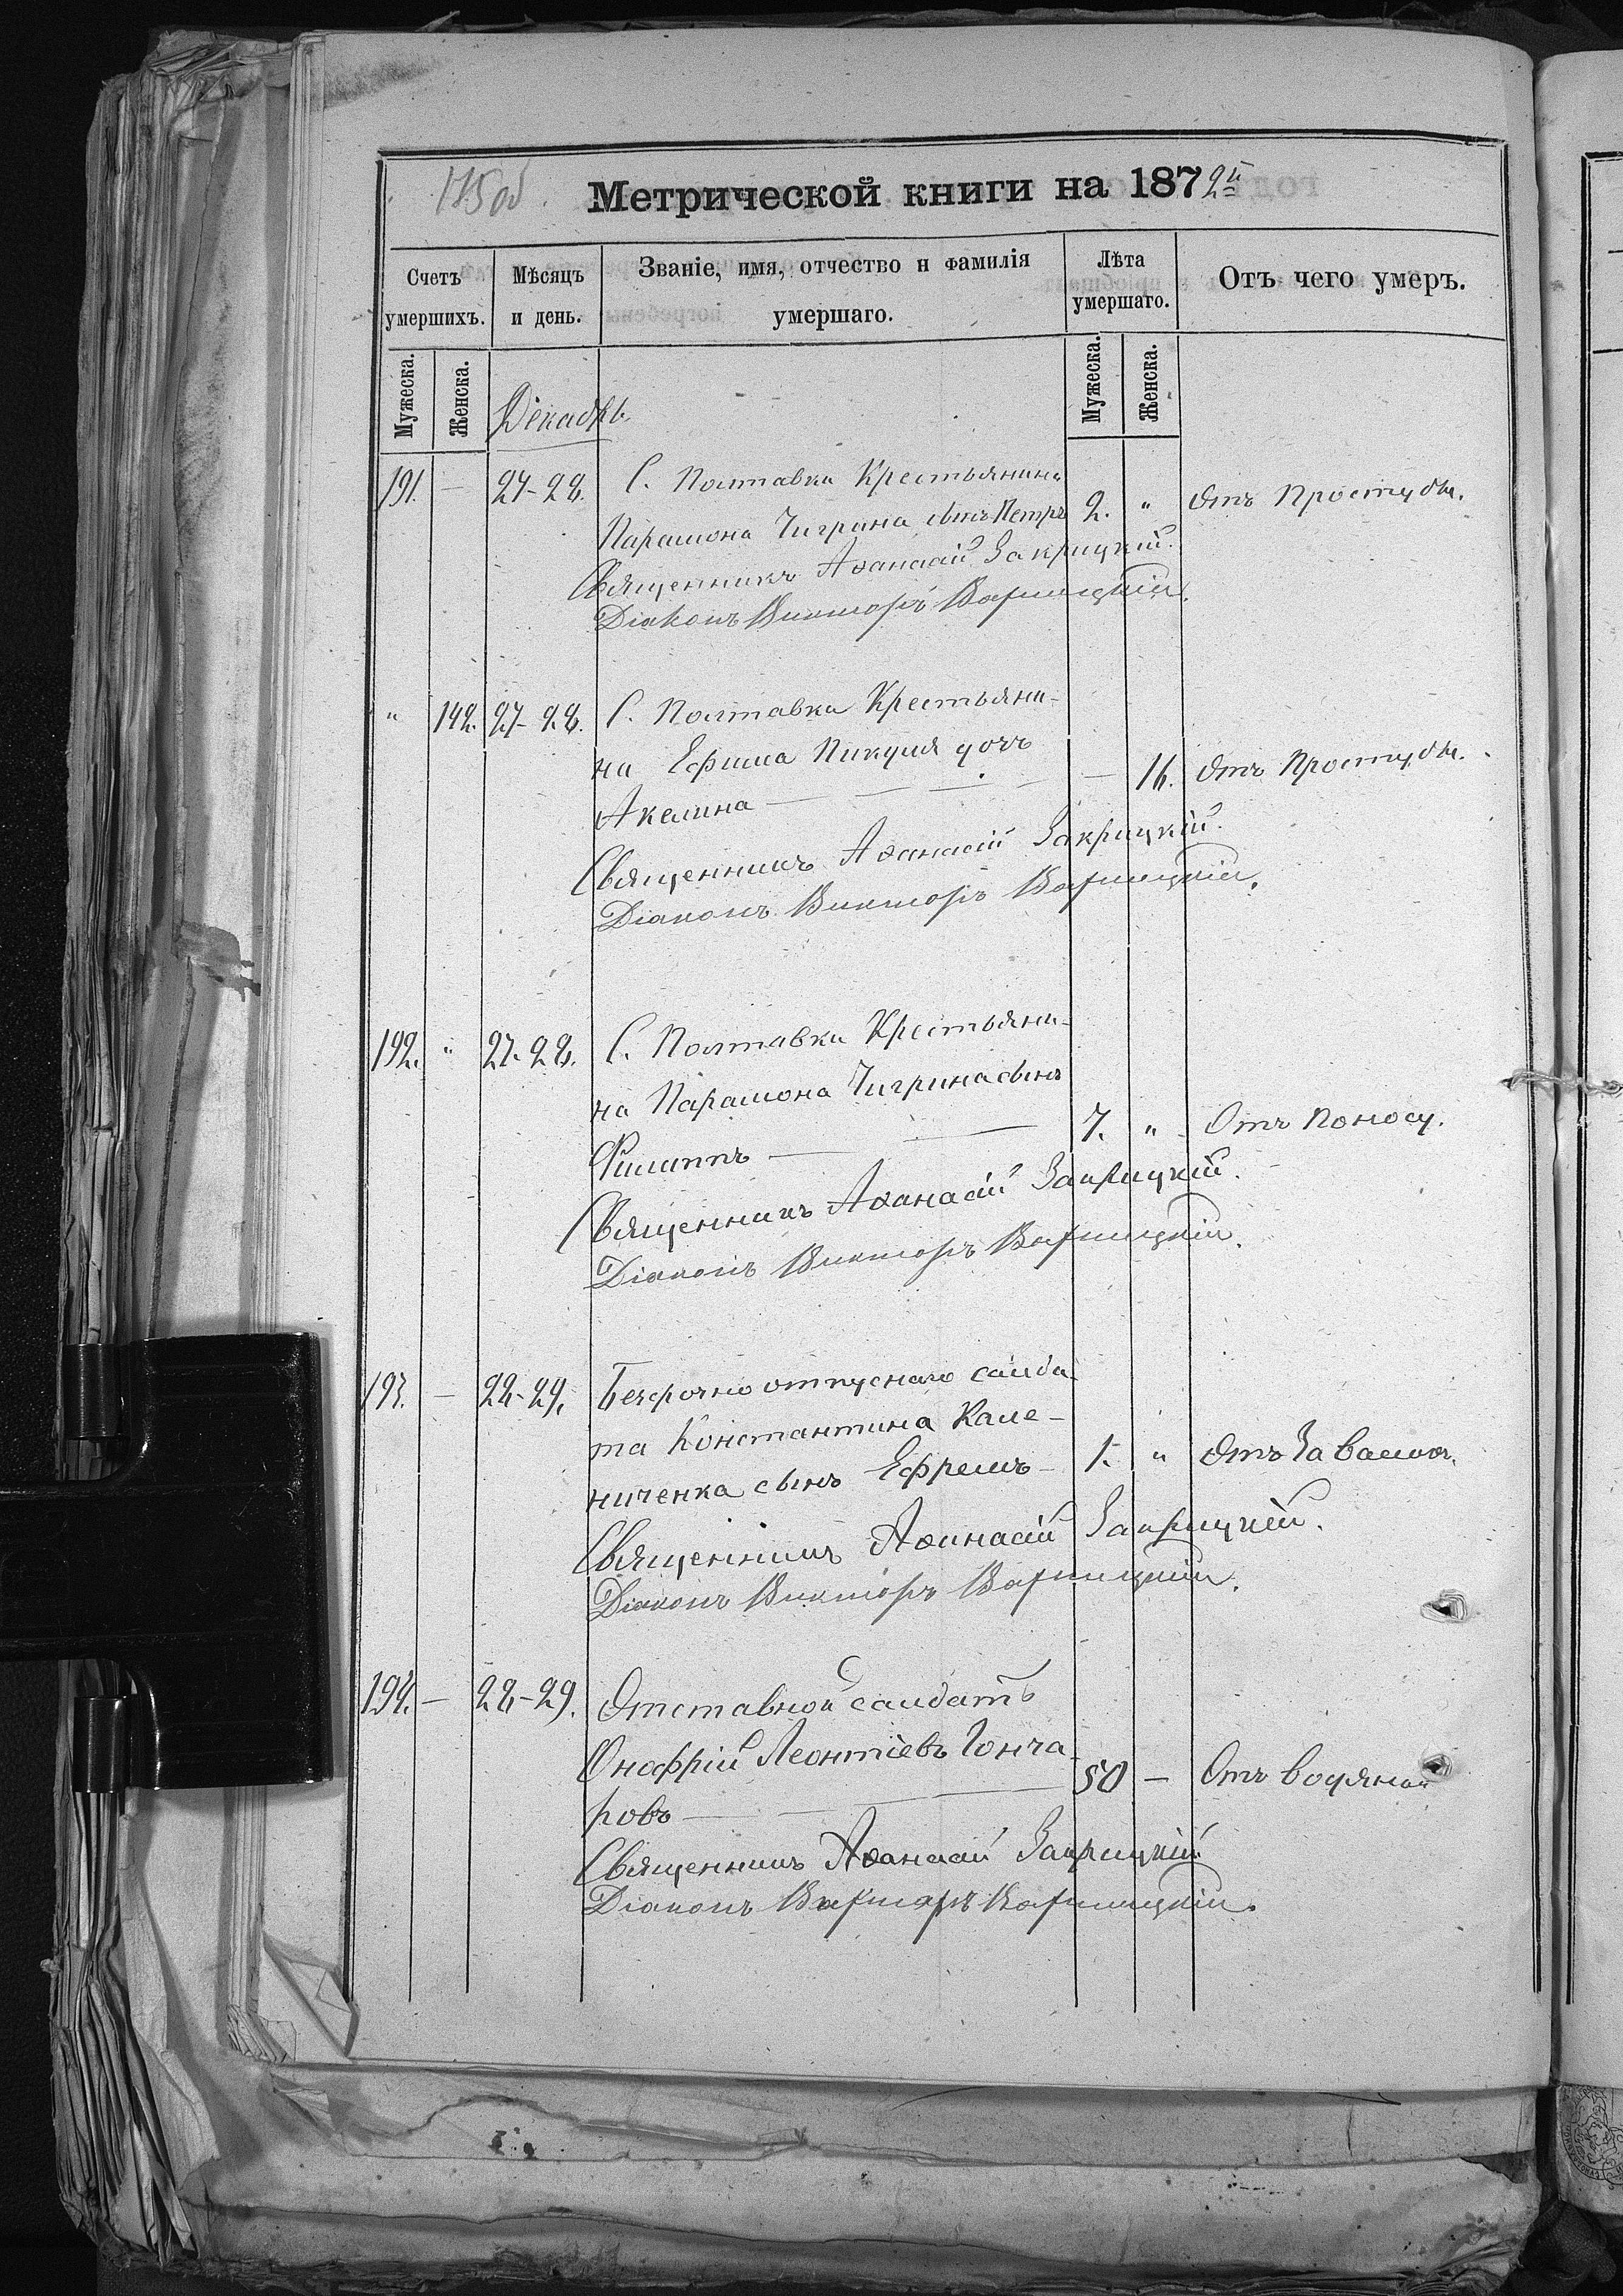 175об.
Метрической книги на 1872й
Счетъ умершихъ.
Мѣсяцъ и день.
Званіе, имя, отчество и фамилія умершаго.
Лѣта умершаго.
Отъ чего умеръ.
Мужеска. Женска. Мужеска. Женска.
Декабрь
191. — 27-28. С. Полтавки Крестьянина
Парамона Чигрина сынъ Петръ 2. " Отъ Простуды.
Священникъ Аѳанасій Закрицкій.
Діаконъ Викторъ Варницкій.
" 142. 27-28. С. Полтавки Крестьяни-
на Ефима Пикуля дочь
Акелина — — 16. Отъ Простуды.
Священникъ Аѳанасій Закрицкій.
Діаконъ Викторъ Варницкій.
192. " 27-28. С. Полтавки Крестьяни-
на Парамона Чигрина сынъ
Филиппъ — 7. " Отъ Поносу.
Священникъ Аѳанасій Закрицкій.
Діаконъ Викторъ Варницкій.
193. — 28-29. Безсрочно отпускнаго салда-
та Константина Кале-
ниченка сынъ Ефремъ — 1. " Отъ Завалокъ.
Священникъ Аѳанасій Закрицкій.
Діаконъ Викторъ Варницкій.
194. — 28-29. Отставной салдатъ
Онофрій Леонтіевъ Гонча-
ровъ — 50 — Отъ водяной
Священникъ Аѳанасій Закрицкій
Діаконъ Викторъ Варницкій.